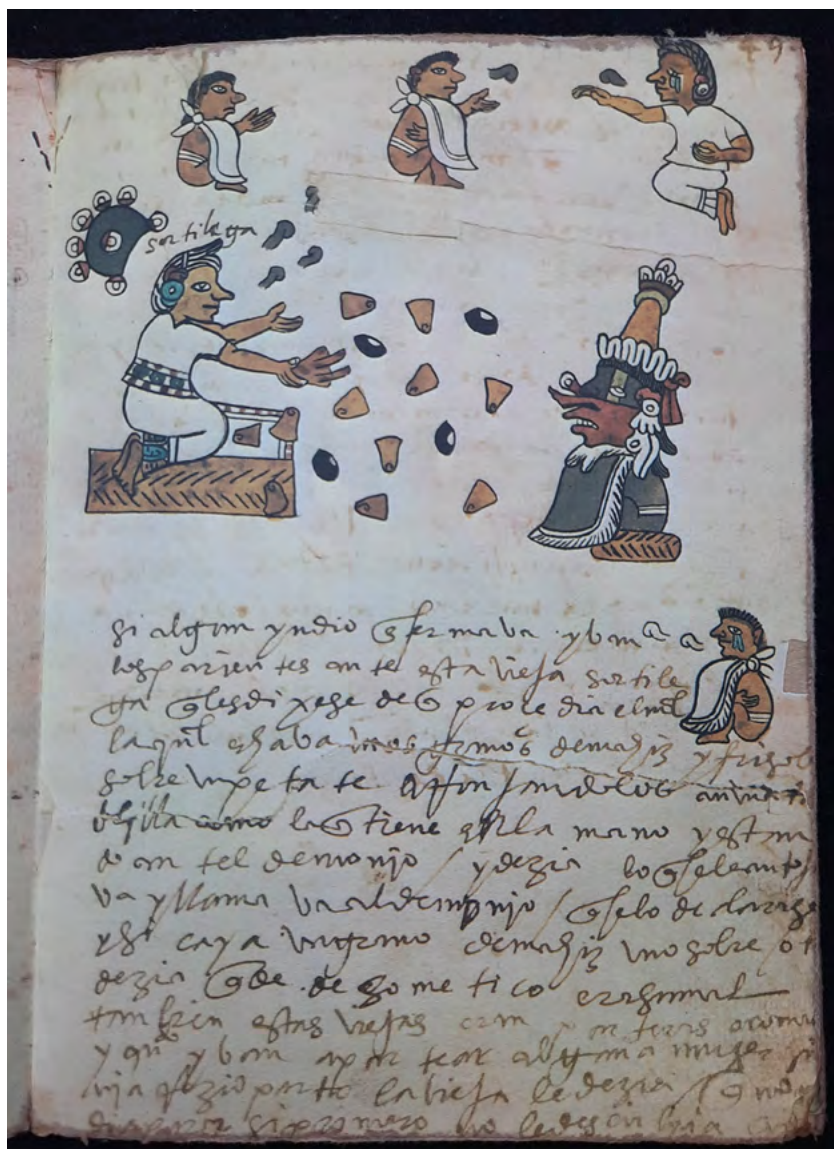 49
sortilega
si algun yndio efermava . yvan
los parientes ante esta vieja sortile
ga q les dixese de q procedia el mal
la qual echava unos granos de mahiz y frisol
sobre un petate
como la q tiene en la mano y estan
do ante el demonjo / y dezia lo q se le antoja
va y llamava al demonjo / q se lo declarase
y si caya un grano de mahiz uno sobre ot
dezia q de . de sometico era su mal
tambien estas viejas eran parteras
y quando yvan a partear alguna muger
la vieja le dezia /
si primero no le descubria